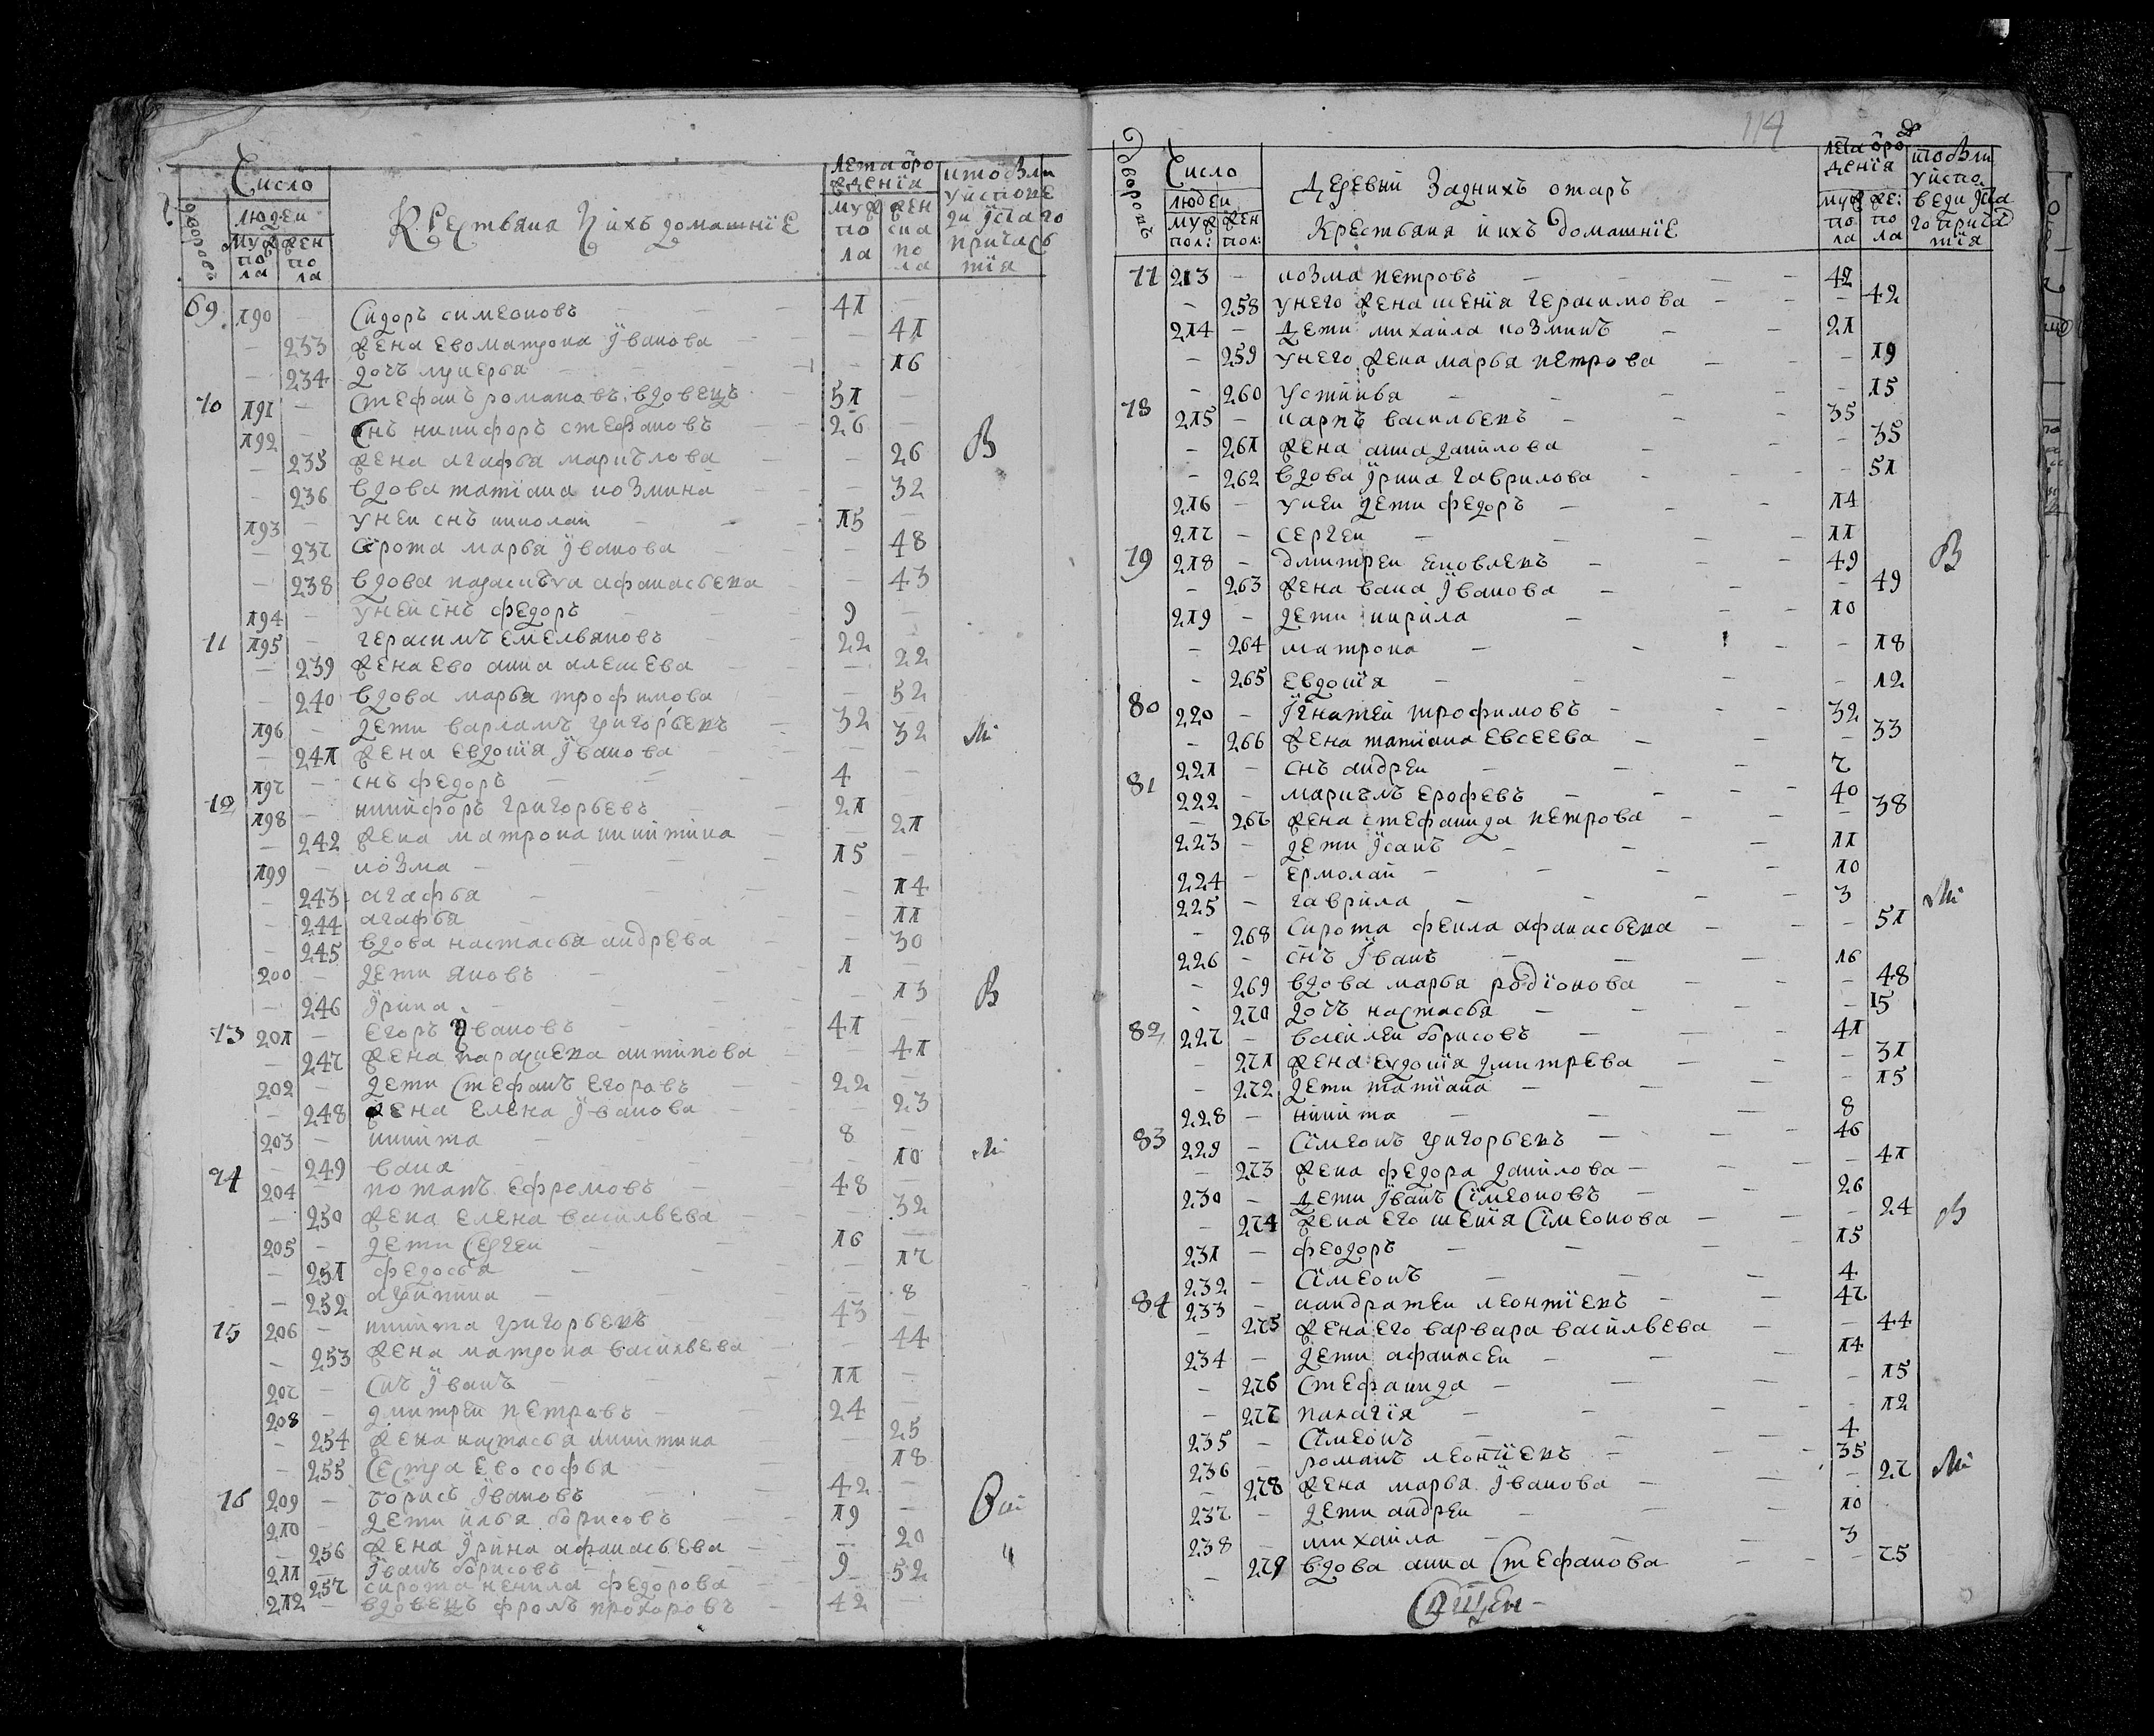 Число
лета ѿро
что бли
дворовъ
людеи
Крестьяня и ихъ домашніе
жденія
у испове
муж
жен
муж
жен
ди и свята го
по ла
по ла
по ла
ска по ла
причас тія
69 190 – Сидоръ симеоновъ – 41 –
– 233 жена ево матрона івanова – 41
– 234 дочь лукерья – 16
70 191 – Стефанъ романовъ вдовецъ – 51 –
192 – снъ никифоръ стефановъ – 26 –
– 235 жена агафья маркѣлова – 26 В
– 236 вдова татіана козмина – 32
193 – у неи снъ николаи – 15 –
– 237 сирота марья іванова – 48
– 238 вдова параскѣva афанасьева – 43
194 – у неи снъ федоръ – 9 –
71 195 – герасимъ емельяновъ – 22 –
– 239 жена ево анна алеѯева – 22
– 240 вдова марья трофимова – 52
196 – дети варламъ григорьевъ – 32
– 241 жена евдокія іванова – 32
197 – снъ федоръ – 4 –
72 198 – никифоръ григорьевъ – 21
– 242 жена матрона никитина – 21
199 – козма – 15 –
– 243 агафья – 14
– 244 агафья – 11
– 245 вдова настасья андрева – 30
200 – дети яковъ – 1 –
– 246 ірина – 13 В
73 201 – егоръ івановъ – 41 –
– 247 жена параскева антипова – 41
202 – дети стефанъ егоровъ – 22 –
– 248 жена елена іванова – 23
203 – никита – 8 –
– 249 васа – 10
74 204 – потапъ ефремовъ – 48 –
– 250 жена елена васильева – 32
205 – дети сергеи – 16 –
– 251 федосья – 17
– 252 агрипина – 8
75 206 – никита григорьевъ – 43 –
– 253 жена матрона васильева – 44
207 – снъ іванъ – 11 –
208 – дмитреи петровъ – 24 –
– 254 жена настасья никитина – 25
– 255 сестра ево софья – 18
76 209 – борисъ івановъ – 42 –
210 – дети илья борисовъ – 19 –
– 256 жена ірина афанасьева – 20
211 – іванъ борисовъ – 9
257 сирота ненила федорова – 52
212 – вдовецъ фролъ прохоровъ – 42
114
Число
деревни Задних отаръ
лета ѿро
что бли
дворовъ
людеи
Крестьяня и ихъ домашніе
жденія
у испо
муж пол:
жен пол:
муж по ла
же: по ла
веди и свята го прича тія
77 213 – козма петровъ – 42
– 258 у него жена ксенія герасимова – 42
214 – дети михаила козминъ – 21
– 259 у него жена марья петрова – 19
– 260 устинья – 15
78 215 – карпъ васильевъ – 35
– 261 жена анна данилова – 35
– 262 вдова ірина гаврилова – 51
216 – у неи дети федоръ – 14
217 – сергеи – 11
79 218 – дмитреи яковлевъ – 49 В
– 263 жена васа іванова – 49
219 – дети кирила – 10
– 264 матрона – 18
– 265 евдокія – 12
80 220 – ігнатеи трофимовъ – 32
– 266 жена татіана евсеева – 33
221 – снъ андреи – 7
81 222 – маркѣлъ ерофевъ – 40
– 267 жена стефанида петрова – 38
223 – дети ісакъ – 11
224 – ермолаи – 10
225 – гаврила – 3
– 268 сирота фекла афанасьева – 51
226 – снъ іванъ – 16
– 269 вдова марья родіонова – 48
– 270 дочь настасья – 15
82 227 – василеи борисовъ – 41
– 271 жена евдокія дмитрева – 31
– 272 дети татіана – 15
228 – никита – 8
83 229 – симеонъ григорьевъ – 46
– 273 жена федора данилова – 41
230 – дети іванъ симеоновъ – 26
– 274 жена его ксенія симеонова – 24 В
231 – феодоръ – 15
232 – симеонъ – 4
84 233 – кандратеи леонтіевъ – 47
– 275 жена его варвара васильева – 44
234 – дети афанасеи – 14
– 276 стефанида – 15
– 277 палагія – 12
235 – симеонъ – 4
236 – романъ леонтіевъ – 35
– 278 жена марья іванова – 27
237 – дети андреи – 10
238 – михаила – 3
– 279 вдова анна стефанова – 75
Свщен–